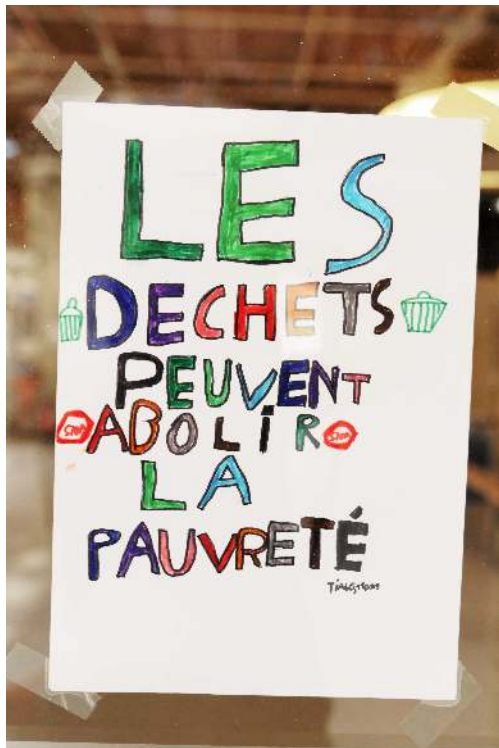 LES
DECHETS
PEUVENT
STOP ABOLIR STOP
LA
PAUVRETÉ